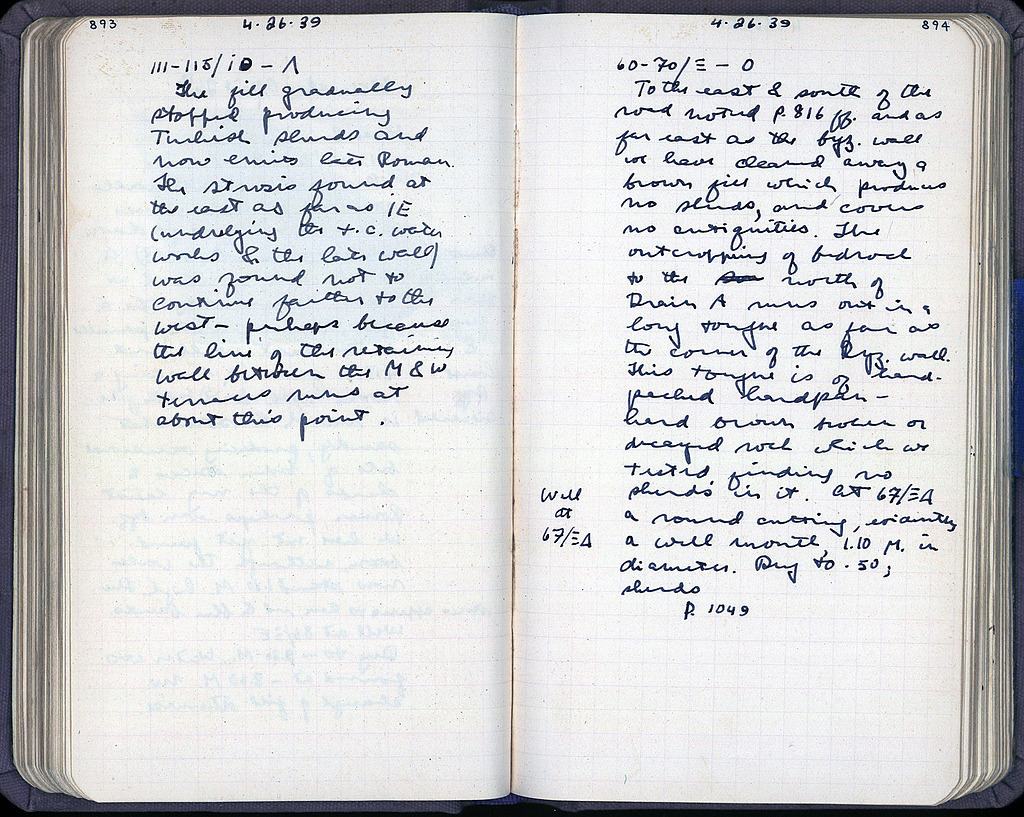 893
4-26-39
111-115/ΙΘ - Λ
The fill gradually
stopped producing
Turkish sherds and
now emits late Roman.
The strosis found at
the east as far as ΙΕ
(underlying the t.c. water
works & the late wall)
was found not to
continue farther to the
west - perhaps because
the line of the retaining
wall between the M & W
terraces runs at
about this point.
4-26-39
894
60-70/Ξ - Ο
To the east & south of the
road noted p. 816 ff. and as
far east as the byz. wall
we have cleared away a
brown fill which produces
no sherds, and covers
no antiquities. The
outcropping of bedrock
to the north of
Drain A runs out in a
long tongue as far as
the corner of the Byz. wall.
This tongue is of hard-
packed hardpan -
hard brown broken or
decayed rock which we
tested finding no
sherds in it. At 67/ΞΔ
a round cutting, evidently
a well mouth, 1.10 M. in
diameter. Dug to -.50;
sherds
P. 1049
Well
at
67/ΞΔ